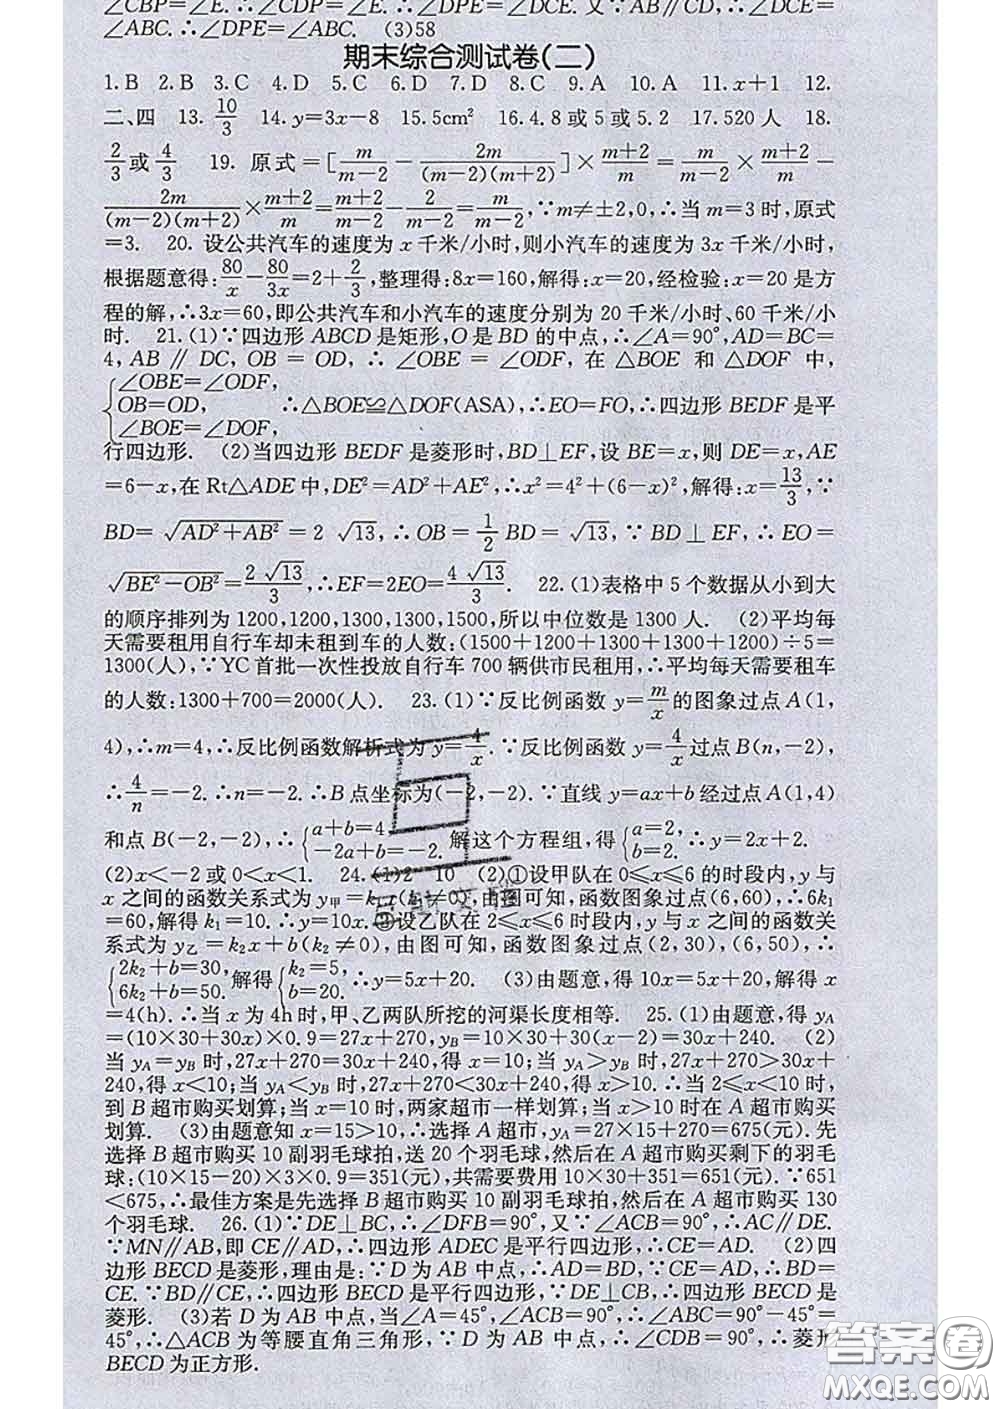 ∠CBP=∠E. ∴∠DPE=∠DCE. 又∵AB∥CD, ∴∠DCE=
∠ABC. ∴∠DPE=∠ABC. (3)58
期末综合测试卷(二)
1.B 2.B 3.C 4.D 5.C 6.D 7.D 8.C 9.A 10.A 11.x+1 12.
二、四 13. 10/3 14.y=3x-8 15.5cm² 16.4.8或5或5.2 17.520人 18.
2/3或4/3 19. 原式=[m/(m-2)-2m/((m-2)(m+2))]×(m+2)/m=m/(m-2)×(m+2)/m-
2m/((m-2)(m+2))×(m+2)/m=(m+2)/(m-2)-2/(m-2)=m/(m-2),∵m≠±2,0,∴当m=3时,原式
=3. 20. 设公共汽车的速度为x千米/小时,则小汽车的速度为3x千米/小时,
根据题意得:80/x-80/3x=2+2/3,整理得:8x=160,解得:x=20,经检验:x=20是方
程的解,∴3x=60,即公共汽车和小汽车的速度分别为20千米/小时、60千米/小
时. 21.(1)∵四边形ABCD是矩形,O是BD的中点,∴∠A=90°,AD=BC=
4,AB∥DC,OB=OD,∴∠OBE=∠ODF,在△BOE和△DOF中,
{∠OBE=∠ODF,
OB=OD, ∴△BOE≌△DOF(ASA),∴EO=FO,∴四边形BEDF是平
∠BOE=∠DOF,
行四边形. (2)当四边形BEDF是菱形时,BD⊥EF,设BE=x,则DE=x,AE
=6-x,在Rt△ADE中,DE²=AD²+AE²,∴x²=4²+(6-x)²,解得:x=13/3,∵
BD=√(AD²+AB²)=2√13,∴OB=1/2BD=√13,∵BD⊥EF,∴EO=
√(BE²-OB²)=2√13/3,∴EF=2EO=4√13/3. 22.(1)表格中5个数据从小到大
的顺序排列为1200,1200,1300,1300,1500,所以中位数是1300人. (2)平均每
天需要租用自行车却未租到车的人数:(1500+1200+1300+1300+1200)÷5=
1300(人),∵YC首批一次性投放自行车700辆供市民租用,∴平均每天需要租车
的人数:1300+700=2000(人). 23.(1)∵反比例函数y=m/x的图象过点A(1,
4),∴m=4,∴反比例函数解析式为y=4/x.∵反比例函数y=4/x过点B(n,-2),
∴4/n=-2.∴n=-2.∴B点坐标为(-2,-2).∵直线y=ax+b经过点A(1,4)
和点B(-2,-2),∴{a+b=4, -2a+b=-2. 解这个方程组,得{a=2, b=2. ∴y=2x+2.
(2)x<-2或0<x<1. 24.(1)2 10 (2)①设甲队在0≤x≤6的时段内,y与
x之间的函数关系式为y甲=k₁x(k₁≠0),由图可知,函数图象过点(6,60),∴6k₁
=60,解得k₁=10.∴y=10x.②设乙队在2≤x≤6时段内,y与x之间的函数关
系式为y乙=k₂x+b(k₂≠0),由图可知,函数图象过点(2,30),(6,50),∴
{2k₂+b=30, 6k₂+b=50. 解得{k₂=5, b=20. ∴y=5x+20. (3)由题意,得10x=5x+20,解得x
=4(h).∴当x为4h时,甲、乙两队所挖的河渠长度相等. 25.(1)由题意,得yA
=(10×30+30x)×0.9=27x+270,yB=10×30+30(x-2)=30x+240. (2)
当yA=yB时,27x+270=30x+240,得x=10;当yA>yB时,27x+270>30x+
240,得x<10;当yA<yB时,27x+270<30x+240,得x>10.∴当2≤x<10时,
到B超市购买划算;当x=10时,两家超市一样划算;当x>10时在A超市购买
划算. (3)由题意知x=15>10,∴选择A超市,yA=27×15+270=675(元).先
选择B超市购买10副羽毛球拍,送20个羽毛球,然后在A超市购买剩下的羽毛
球:(10×15-20)×3×0.9=351(元),共需要费用10×30+351=651(元).∵651
<675,∴最佳方案是先选择B超市购买10副羽毛球拍,然后在A超市购买130
个羽毛球. 26.(1)∵DE⊥BC,∴∠DFB=90°,又∵∠ACB=90°,∴AC∥DE.
∵MN∥AB,即CE∥AD,∴四边形ADEC是平行四边形,∴CE=AD. (2)四
边形BECD是菱形,理由是:∵D为AB中点,∴AD=BD,∵CE=AD,∴BD=
CE.∵BD∥CE,∴四边形BECD是平行四边形,∵DE⊥CB,∴四边形BECD是
菱形. (3)若D为AB中点,当∠A=45°,∠ACB=90°,∴∠ABC=90°-45°=
45°,∴△ACB为等腰直角三角形,∵D为AB中点,∴∠CDB=90°,∴菱形
BECD为正方形.
答案圈
MXQE.COM